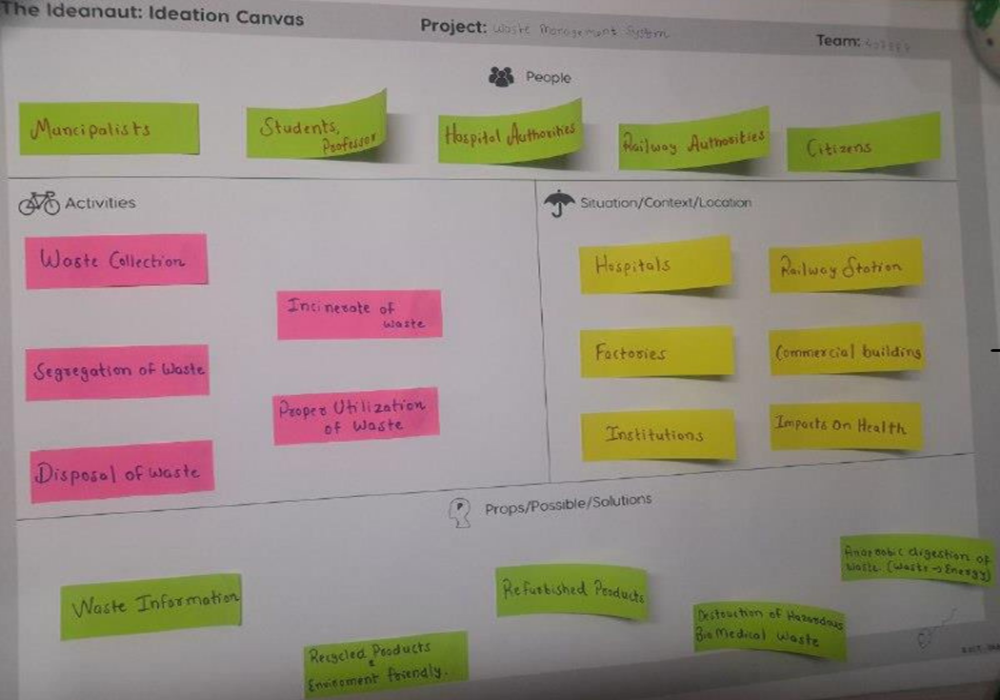 The Ideanaut: Ideation Canvas
Project: Waste Management System
Team:
People
Muncipalists
Students,
Professor
Hospital Authorities
Railway Authorities
Citizens
Activities
Waste Collection
Incinerate of
waste
Segregation of Waste
Proper Utilization
of Waste
Disposal of waste
Situation/Context/Location
Hospitals
Railway Station
Factories
Commercial building
Institutions
Impacts On Health
Props/Possible/Solutions
Waste Information
Recycled Products
&
Enviroment friendly.
Refurbished Products
Destruction of Hazardous
BioMedical Waste
Anaerobic digestion of
Waste. (Waste → Energy)